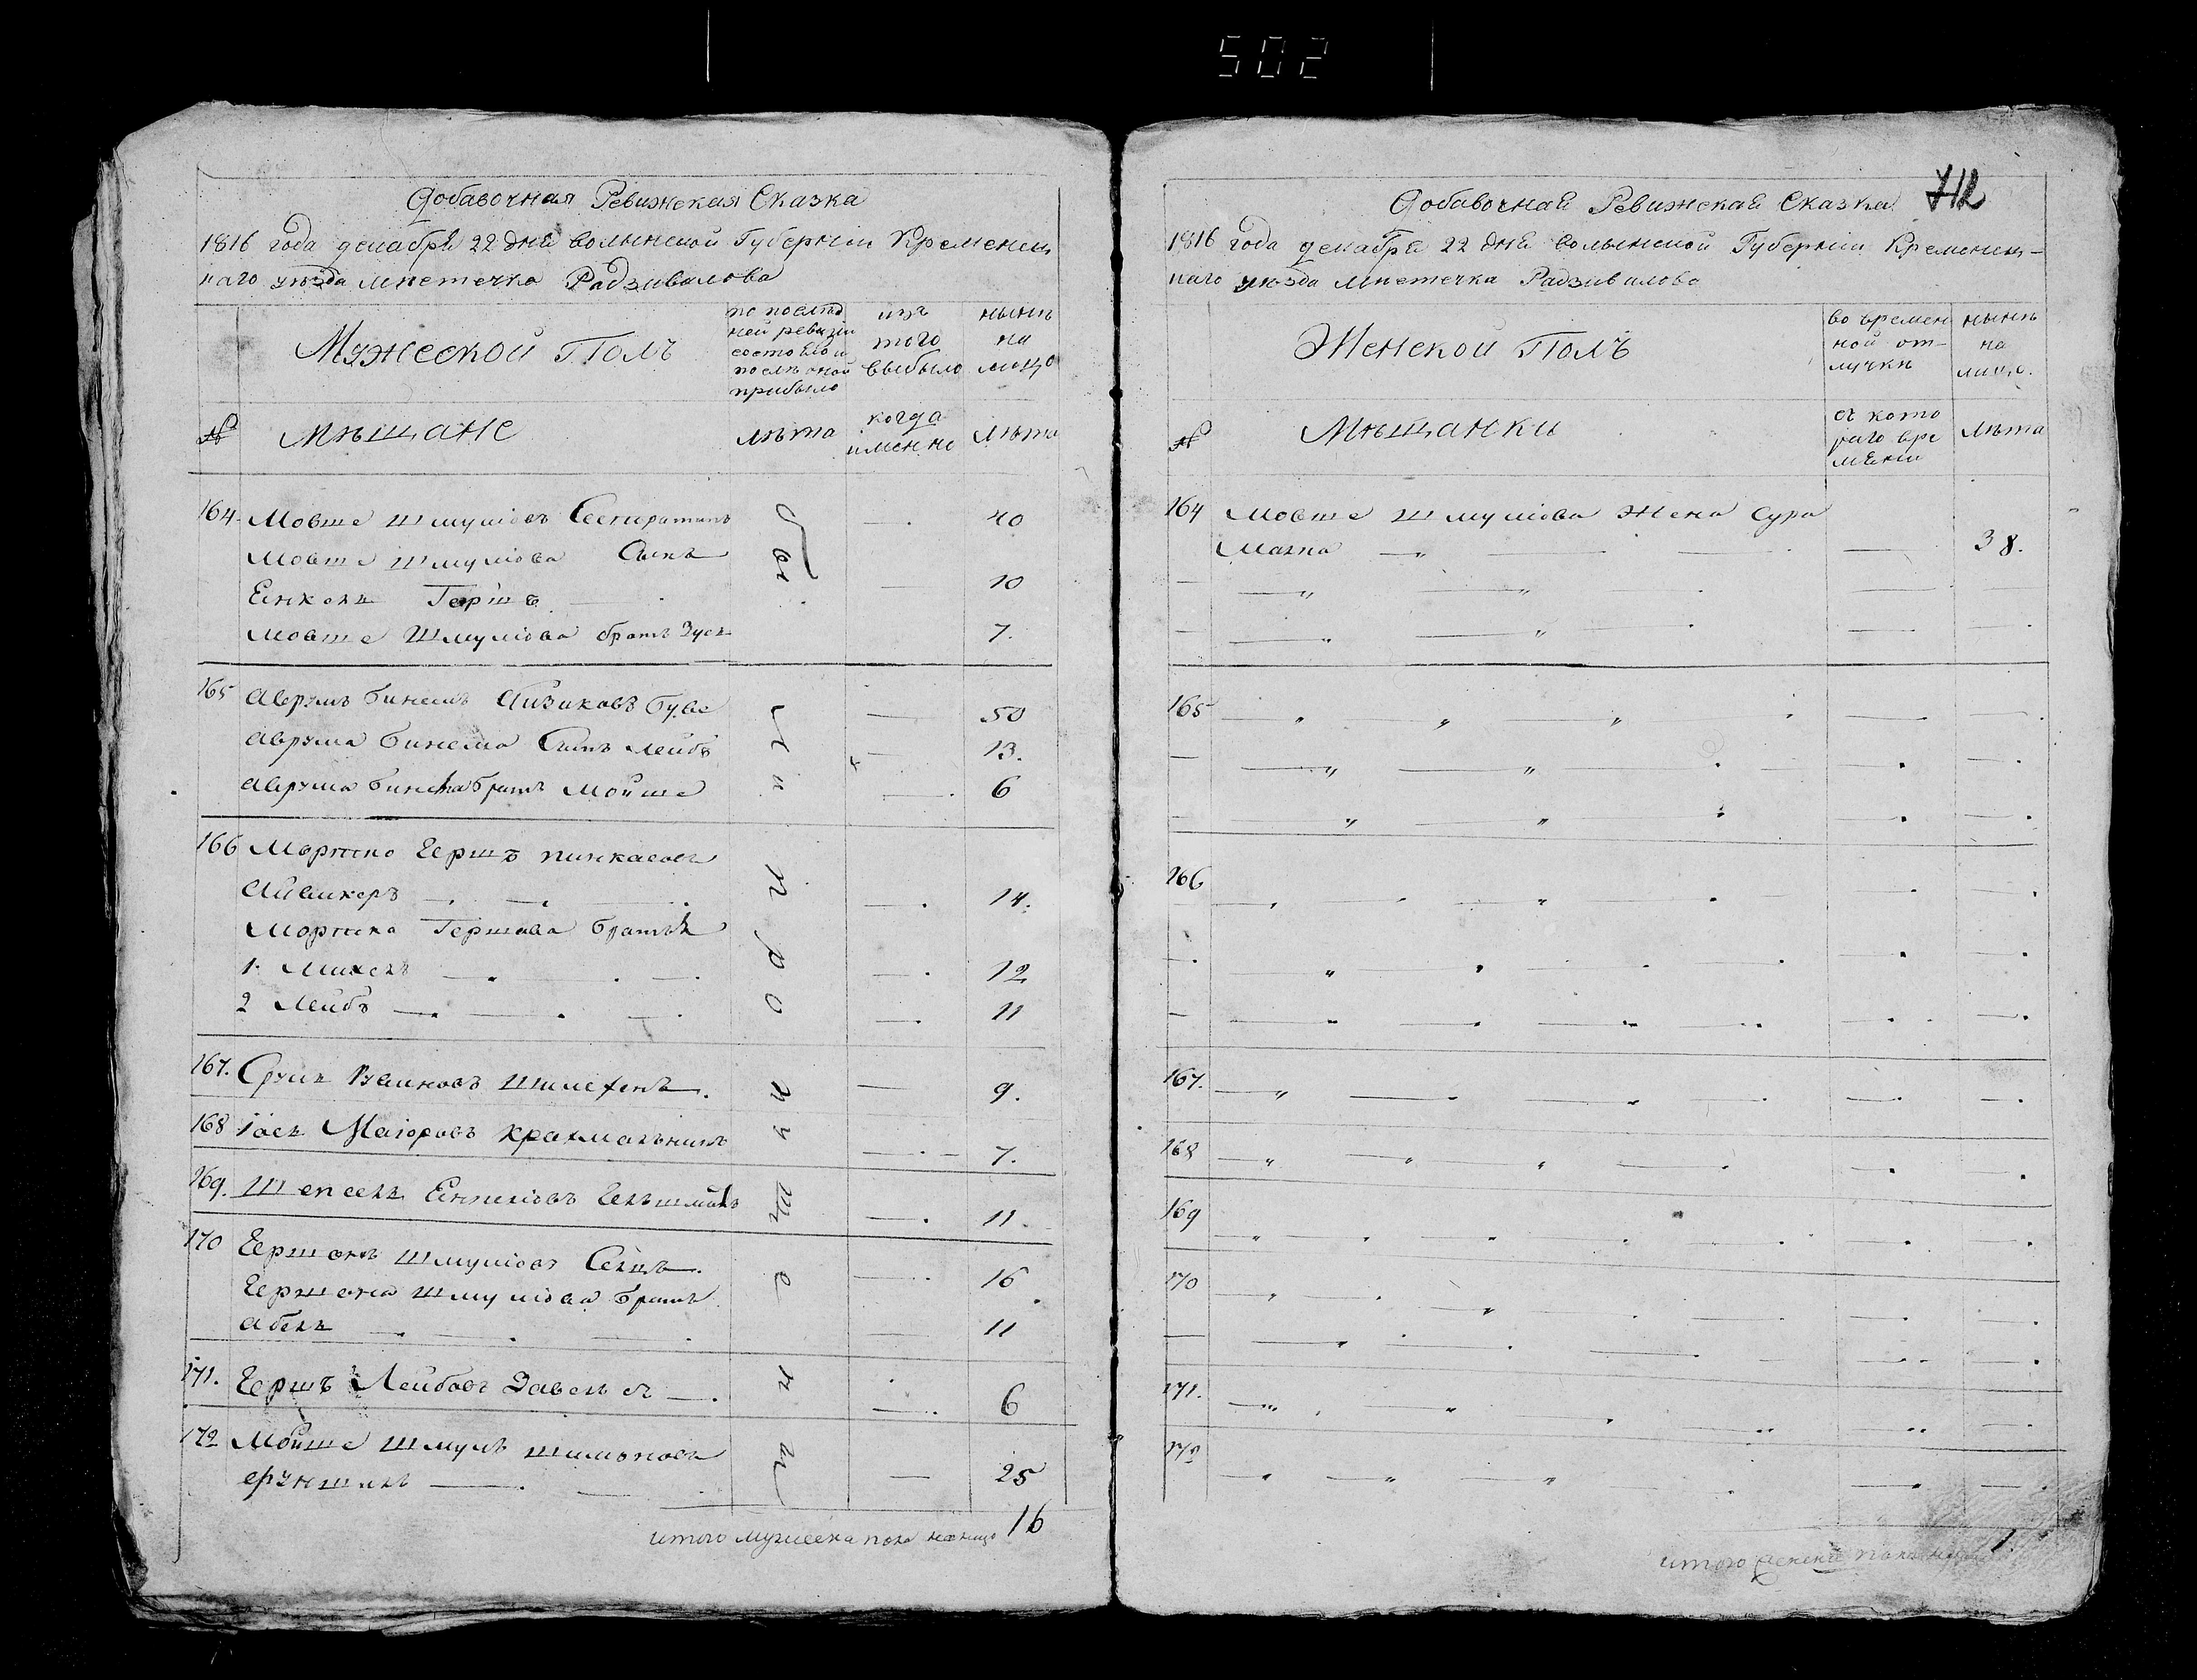 502
Добавочная Ревижская Сказка
1816 года декабря 22 дня волынской Губернии Кременец
наго уѣзда мѣстечка Радзивалова
Мужеской Полъ
по послѣд
ней ревизіи
состояло и
послѣ оной
прибыло
изъ
того
выбыло
нынѣ
на
лицо
№ Мѣщане
лѣта
когда
именно
лѣта
164. Мовше Шмуліовъ 40
Мовше Шмуліова Сынъ
Енкель Гершъ 10
Мовше Шмуліова братъ Зусь 7.
165 Аврумъ Бинемъ Айзиковъ 50
Аврума Бинема Сынъ Лейбъ 13.
Аврума Бинема Братъ Мойше 6
166 Мортко Гершъ Пинкасовъ
14.
Мортка Гершова Братья
1. Михель 12
2 Лейбъ 11
167. Сруль 9.
168 Іось Маіоровъ Крахмальникъ 7.
169. Шепсель Енкеліовъ 11.
170 Гершонъ Шмуліовъ 16
Гершона Шмуліова Братъ
Абель 11
171. Гершъ Лейбовъ 6
172 Мойше Шмуль Шимоновъ
25
были пропущены
итого мужеска пола налицо 16
Добавочная Ревижская Сказка
712
1816 года декабря 22 дня волынской Губернии Кременец-
наго уѣзда мѣстечка Радзивалова
Женской Полъ
во времен
ной от-
лучкѣ
нынѣ
на
лицо.
№ Мѣщанки
съ кото
раго вре
мени
лѣта
164 Мовше Шмуліова Жена Сура
Малка 38.
165
166
167.
168
169
170
171.
172
итого женска пола 1.